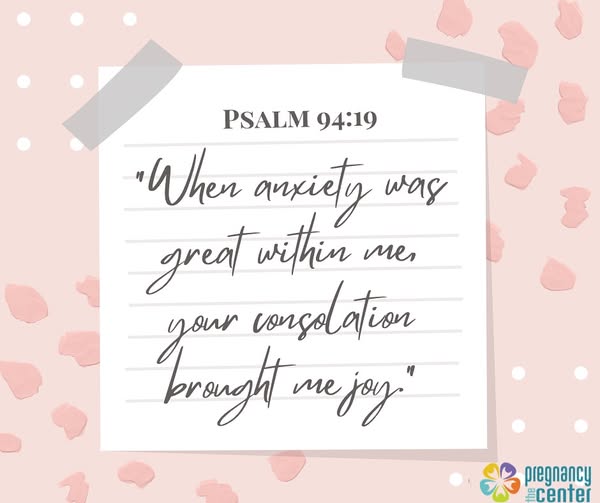 PSALM 94:19
"When anxiety was
great within me,
your consolation
brought me joy."
pregnancy
the center